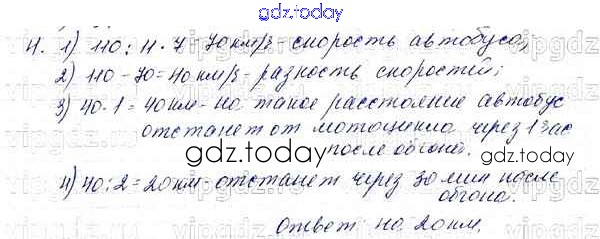 gdz.today
4. 1) 110 : 11 · 7 = 70 км/ч - скорость автобуса;
2) 110 - 70 = 40 км/ч - разность скоростей;
3) 40 · 1 = 40 км - на такое расстояние автобус
отстанет от мотоцикла через 1 час
после обгона.
gdz.today
4) 40 : 2 = 20 км отстанет через 30 мин после
обгона.
Ответ: на 20 км.